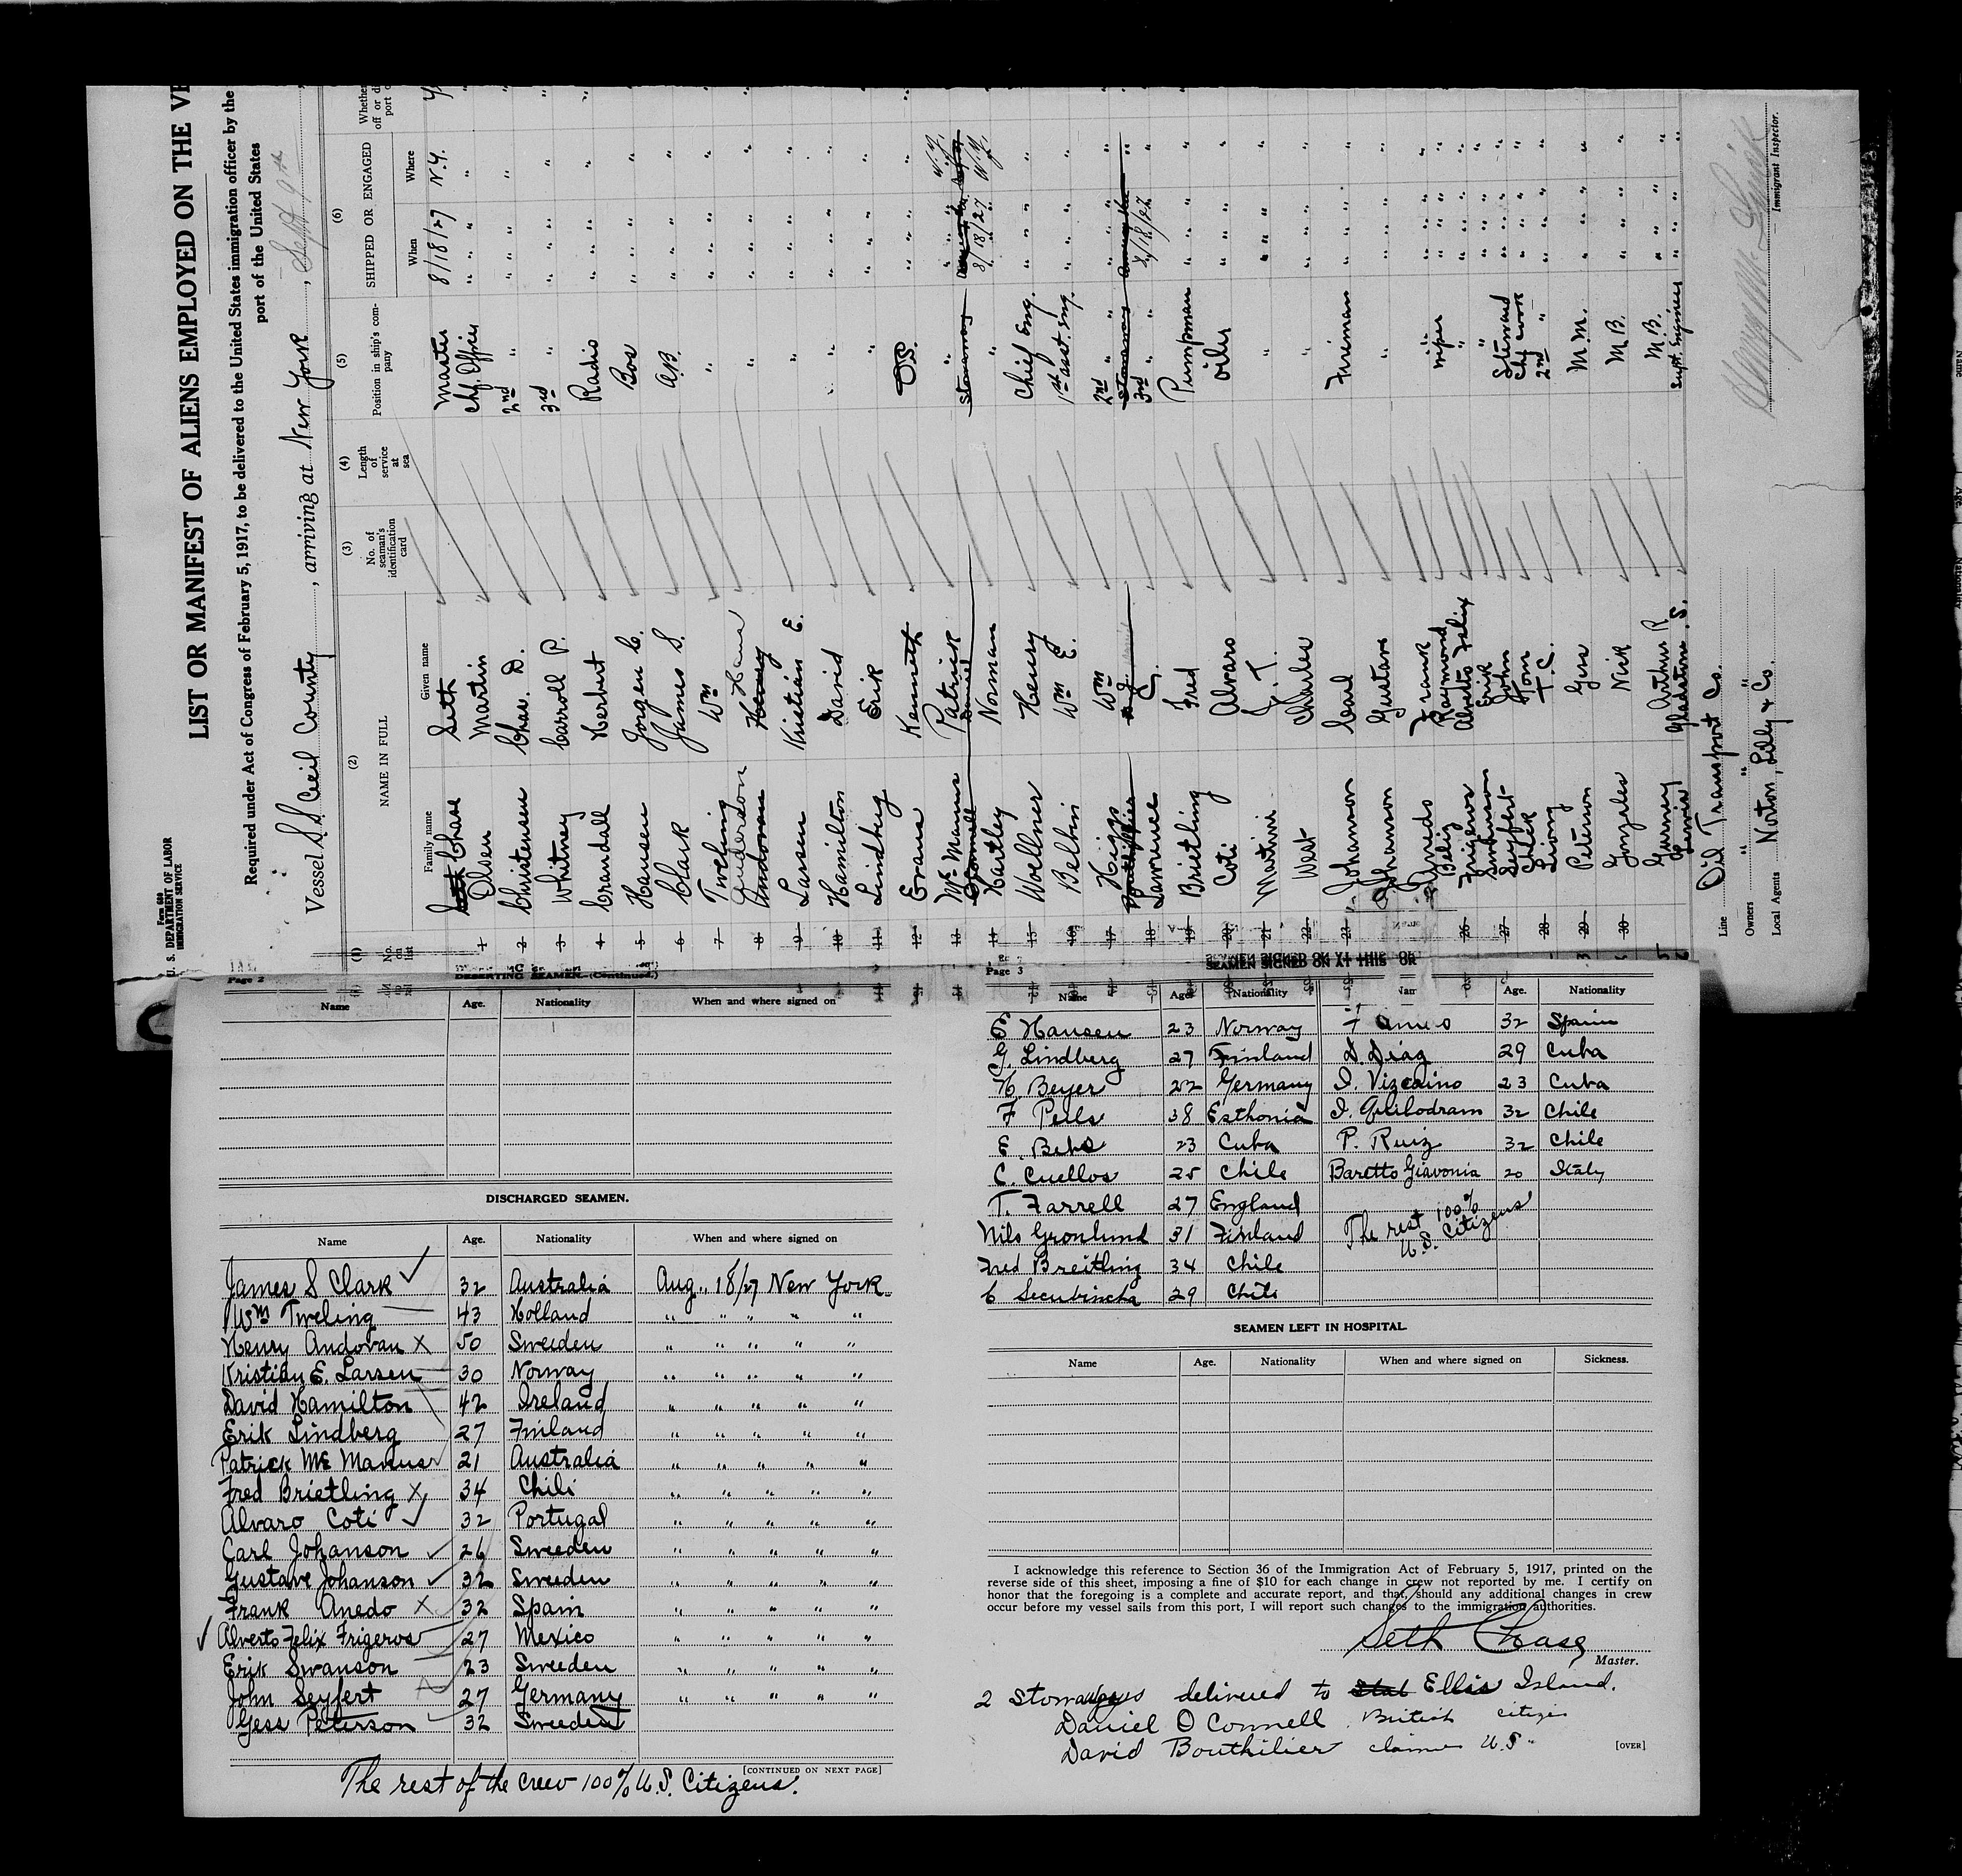 Form 680
U. S. DEPARTMENT OF LABOR
IMMIGRATION SERVICE
LIST OR MANIFEST OF ALIENS EMPLOYED ON THE VE
Required under Act of Congress of February 5, 1917, to be delivered to the United States immigration officer by the
port of the United States
Vessel S.S. Cecil County, arriving at New York, Sept 9th
(1) (2) (3) (4) (5) (6)
No. on list NAME IN FULL No. of seaman's identification card Length of service at sea Position in ship's company SHIPPED OR ENGAGED Whether
Family name Given name When Where
Chase Seth Master 8/18/27 N.Y.
1 Olden Martin Chf. Officer " " " "
2 Christensen Chas. D. 2nd " " " " "
3 Whitney Carroll P. 3rd " " " " "
4 Crandall Herbert Radio " " " "
5 Hansen Jorgen C. Bos " " " "
6 Clark James S. AB " " " "
7 Tweling Wm " " " " "
8 Anderson Andovan Henry " " " " "
9 Larsen Kristian E. " " " " "
10 Hamilton David " " " " "
11 Lindberg Erik " " " " "
12 Evans Kenneth OS " " " "
13 McManus Patrick " " " " N.Y.
O'Connell Daniel Stowaway
14 Hartley Norman " 8/18/27 N.Y.
15 Woellner Henry Chief Eng. " " " "
16 Belbin Wm E. 1st asst. Eng. " " " "
17 Higgs Wm 2nd " " " " "
Stowaway
18 Lawrence G. 3rd " " "
19 Brietling Fred Pumpman " " " "
20 Coti Alvaro Oiler " " " "
21 Martini J. T. " " " " "
22 West Charles " " " " "
23 Johanson Carl Fireman " " " "
Johanson Gustave " " " " "
Anedo Frank " " " " "
Raymond wiper " " " "
26 Frigeros Alverto Felix " " " " "
27 Swanson Erik
Seyfert John Steward " " " "
Tom Chf cook " " " "
28 T. C. 2nd " " " " "
29 Peterson Gess M.M. " " " "
30 Gonzales Nick M.B. " " " "
Gurney Arthur R M.B. " " " "
Gladstone S. Supt. Engineer " " " "
Line Oil Transport Co.
Owners " " "
Local Agents Norton, Lilly & Co.
Immigrant Inspector.
Page 2
DESERTING SEAMEN.—(Continued.)
Name Age. Nationality When and where signed on
DISCHARGED SEAMEN.
Name Age. Nationality When and where signed on
James S Clark 32 Australia Aug., 18/27 New York
Wm Tweling 43 Holland " " " " "
Henry Andovan X 50 Sweeden " " " " "
Kristian E. Larsen 30 Norway " " " " "
David Hamilton 42 Ireland " " " " "
Erik Lindberg 27 Finland " " " " "
Patrick Mc Manus 21 Australia " " " " "
Fred Brietling X 34 Chili " " " " "
Alvaro Coti 32 Portugal " " " " "
Carl Johanson 26 Sweeden " " " " "
Gustave Johanson 32 Sweeden " " " " "
Frank Anedo X 32 Spain " " " " "
Alverto Felix Frigeros 27 Mexico " " " " "
Erik Swanson 23 Sweeden " " " " "
John Seyfert 27 Germany " " " " "
Gess Peterson 32 Sweeden
[CONTINUED ON NEXT PAGE]
The rest of the crew 100% U.S. Citizens.
Page 3
SEAMEN SIGNED ON AT THIS
Name Age Nationality Nam Age. Nationality
E Hansen 23 Norway 32 Spain
G. Lindberg 27 Finland D. Diaz 29 Cuba
H Beyer 22 Germany I. Vizcaino 23 Cuba
F Peils 38 Esthonia 32 Chile
E. Behs 23 Cuba P. Ruiz 32 Chile
C. Cuellos 25 Chile Baretto Giavonia 20 Italy
T. Farrell 27 England
Nils Gronlund 31 Finland The rest 100% U.S. Citizens
Fred Breitling 34 Chile
29 Chile
SEAMEN LEFT IN HOSPITAL
Name Age. Nationality When and where signed on Sickness.
I acknowledge this reference to Section 36 of the Immigration Act of February 5, 1917, printed on the
reverse side of this sheet, imposing a fine of $10 for each change in crew not reported by me. I certify on
honor that the foregoing is a complete and accurate report, and that, should any additional changes in crew
occur before my vessel sails from this port, I will report such changes to the immigration authorities.
Seth Chase
Master.
2 stowaways delivered to Ellis Island.
Daniel O Connell British citizen
David Bouthilier claims U.S "
[OVER]